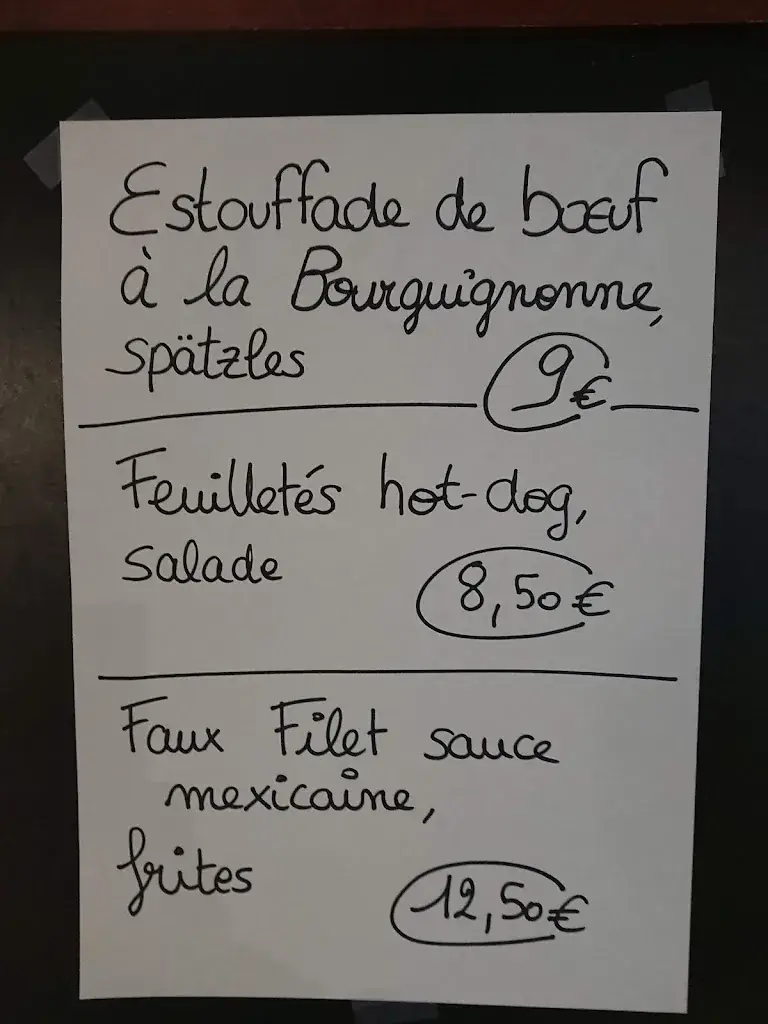 Estouffade de bœuf
à la Bourguignonne,
spätzles
9€
Feuilletés hot-dog,
salade
8,50€
Faux Filet sauce
mexicaine,
frites
12,50€